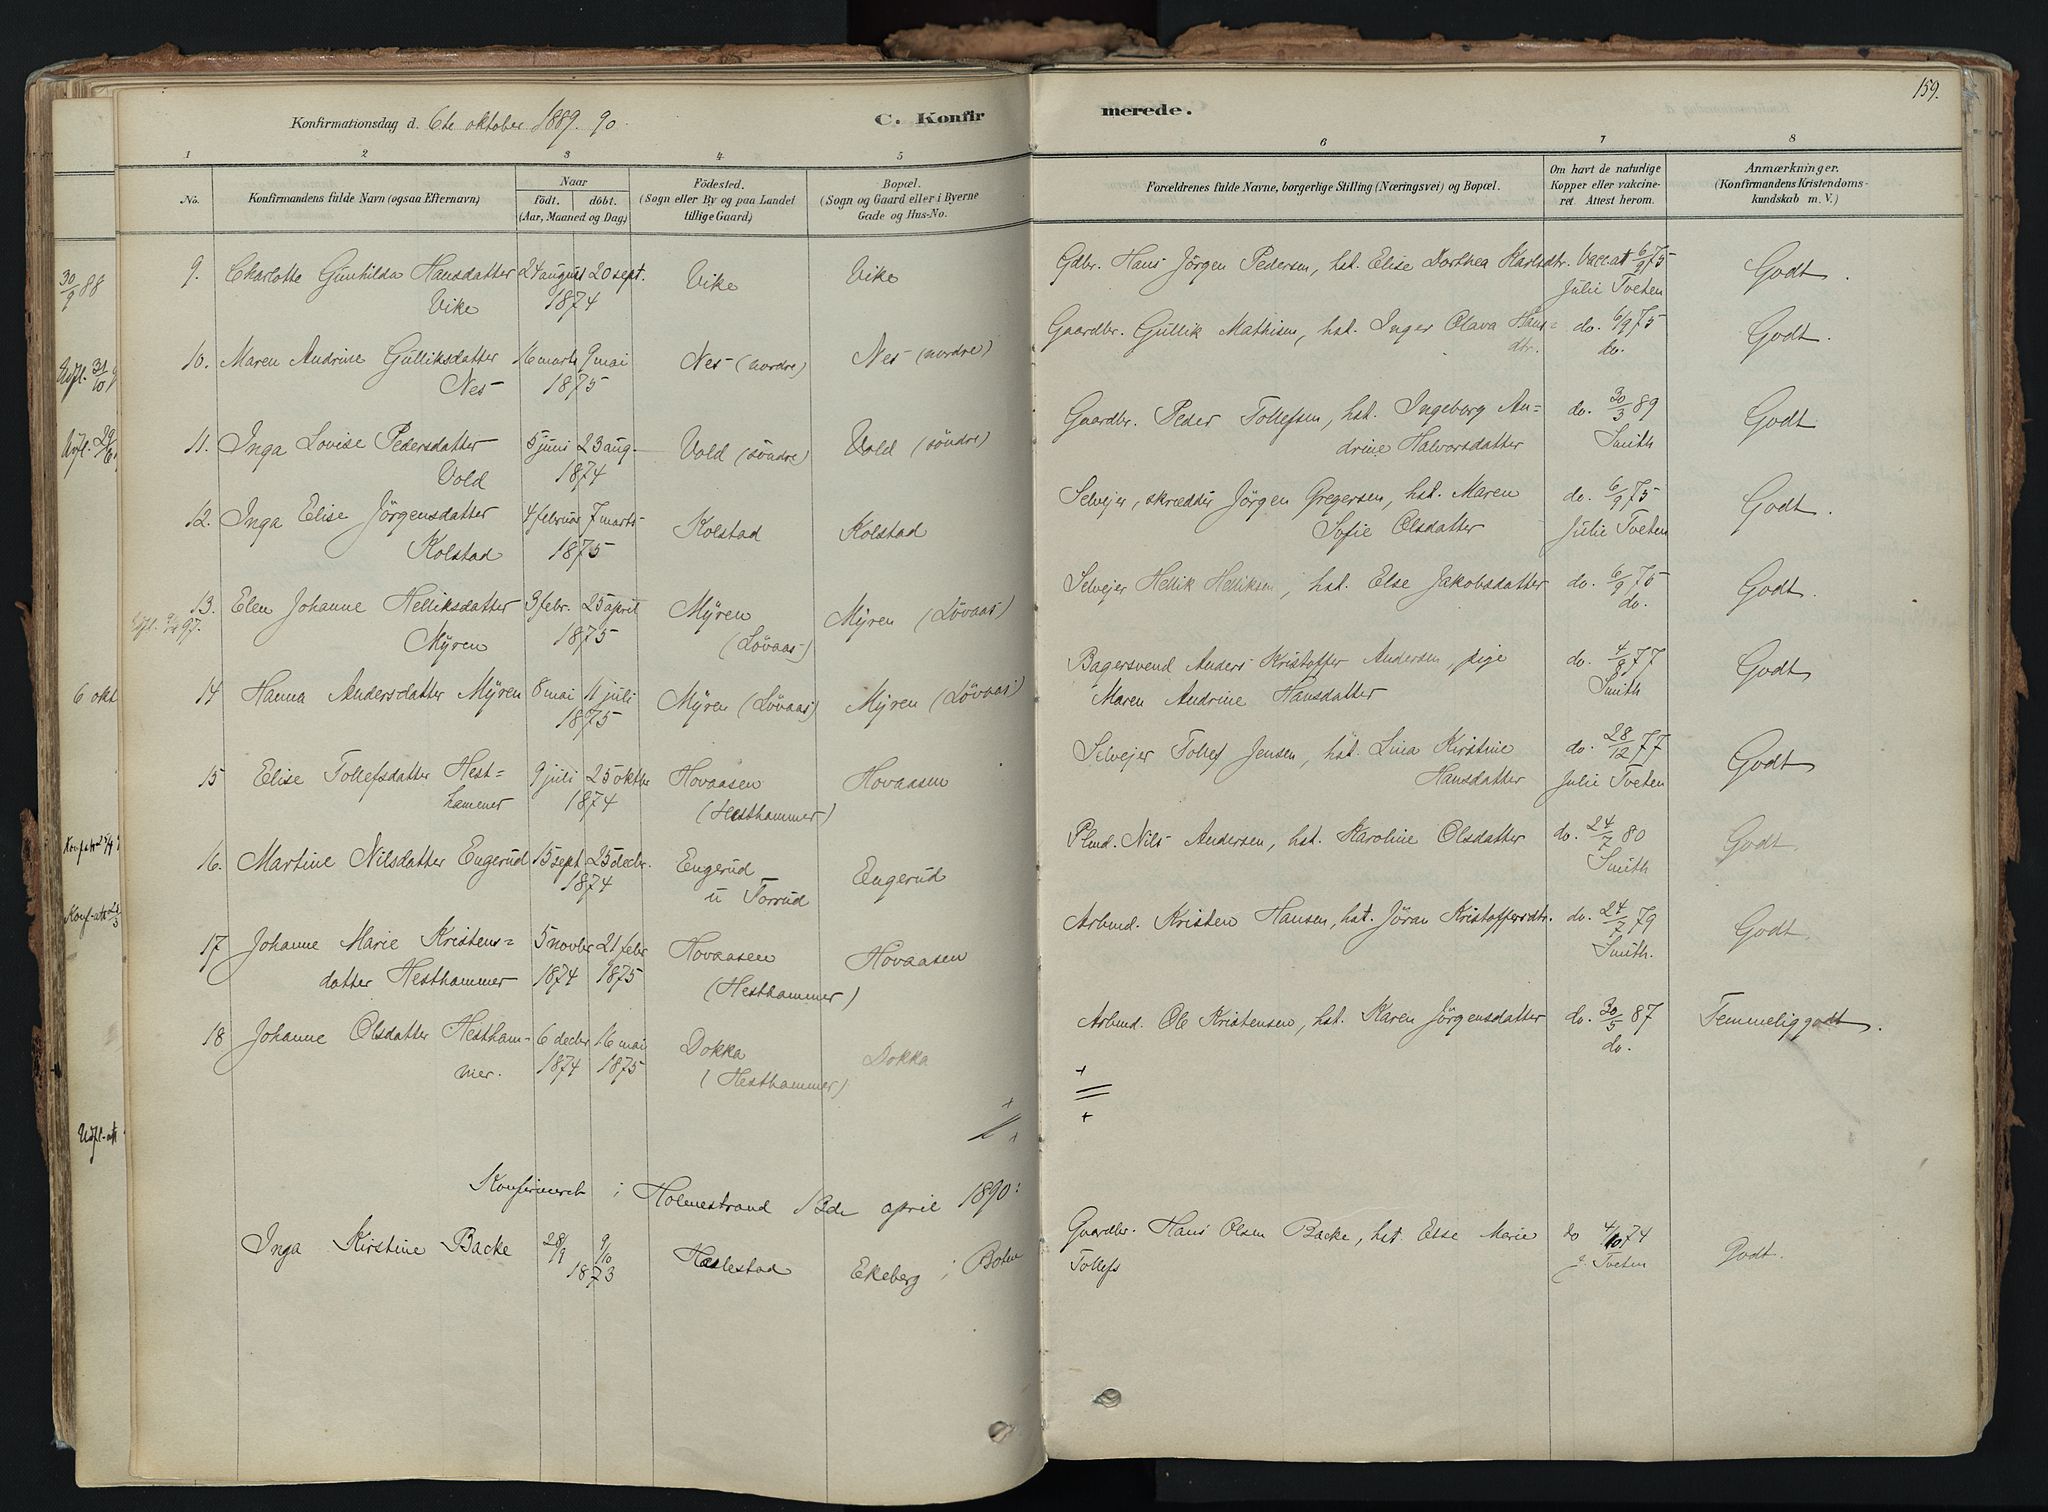 159.
Konfirmationsdag d. 6te oktober 1889. 90.
C. Konfirmerede.
1 2 3 4 5 6 7 8
No.
Konfirmandens fulde Navn (ogsaa Efternavn)
Naar
født. døbt.
(Aar, Maaned og Dag)
Fødested.
(Sogn eller By og paa Landet
tillige Gaard)
Bopæl.
(Sogn og Gaard eller i Byerne
Gade og Hus-No.
Forældrenes fulde Navne, borgerlige Stilling (Næringsvei) og Bopæl.
Om havt de naturlige
Kopper eller vakcine-
ret. Attest herom.
Anmærkninger.
(Konfirmandens Kristendoms-
kundskab m. V.)
30/9 88
9. Charlotte Gunhilda Hansdatter 24 august 20 sept. Vike Vike Gdbr. Hans Jörgen Pedersen, hst. Elise Dorthea Karlsdtr. Vacc. at 6/9 75 Godt.
Vike 1874 Julie Tveten
10. Maren Andrine Gulliksdatter 16 marts 9 mai Nes (nordre) Nes (nordre) Gaardbr. Gullik Mathisen, hst. Inger Olava Hans= do. 6/9 75 Godt.
Nes 1875 dtr. do.
11. Inga Lovise Pedersdatter 5 juni 23 aug. Vold (söndre) Vold (söndre) Gaardbr. Peder Tollefsen, hst. Ingeborg An= do. 30/3 89 Godt
Vold 1874 drine Halvorsdatter Smith
12. Inga Elise Jörgensdatter 4 februar 7 marts Kolstad Kolstad Selvejer, skrædder Jörgen Gregersen, hst. Maren do. 6/9 75 Godt.
Kolstad 1875 Sofie Olsdatter Julie Tveten
13. Elen Johanne Helliksdatter 3 febr. 25 april Myren Myren (Lövaas) Selvejer Hellik Helliksen, hst. Else Jakobsdatter do. 6/9 75 Godt.
97. Myren 1875 (Lövaas) do.
6 okt
14 Hanna Andersdatter Myren 8 mai 11 juli Myren (Lövaas) Myren (Lövaas) Bagersvend Anders Kristoffer Andersen, pige do. 4/8 77 Godt
1875 Maren Andrine Hansdatter Smith
15 Elise Tollefsdatter Hest= 9 juli 25 oktbr Hovaasen Hovaasen Selvejer Tollef Jensen, hst. Lina Kirstine do. 28/12 77 Godt
hammer 1874 (Hesthammer) Hansdatter Julie Tveten
16. Martine Nilsdatter Engerud 15 sept 25 decbr. Engerud Engerud Plmd. Nils Andersen, hst. Karoline Olsdatter do. 24/7 80 Godt.
1874 u Torrud Smith
17 Johanne Marie Kristens= 5 novbr 21 febr Hovaasen Hovaasen Arbmd. Kristen Hansen, hst. Jöran Kristoffersdtr. do. 24/7 79 Godt.
datter Hesthammer 1874 1875 (Hesthammer) Smith.
18 Johanne Olsdatter Hestham- 6 decbr 16 mai Dokka Dokka Arbmd. Ole Kristensen, hst. Karen Jörgensdatter do. 30/5 87 Temmelig godt.
mer. 1874 1875 (Hesthammer) do.
Konfirmeret i Holmestrand 13de april 1890:
Inga Kirstine Backe 28/9 9/10 Haslestad Ekeberg i Botne Gaardbr. Hans Olsen Backe, hst. Else Marie do 4/10 74 Godt.
1873 Tollefs J. Tveten